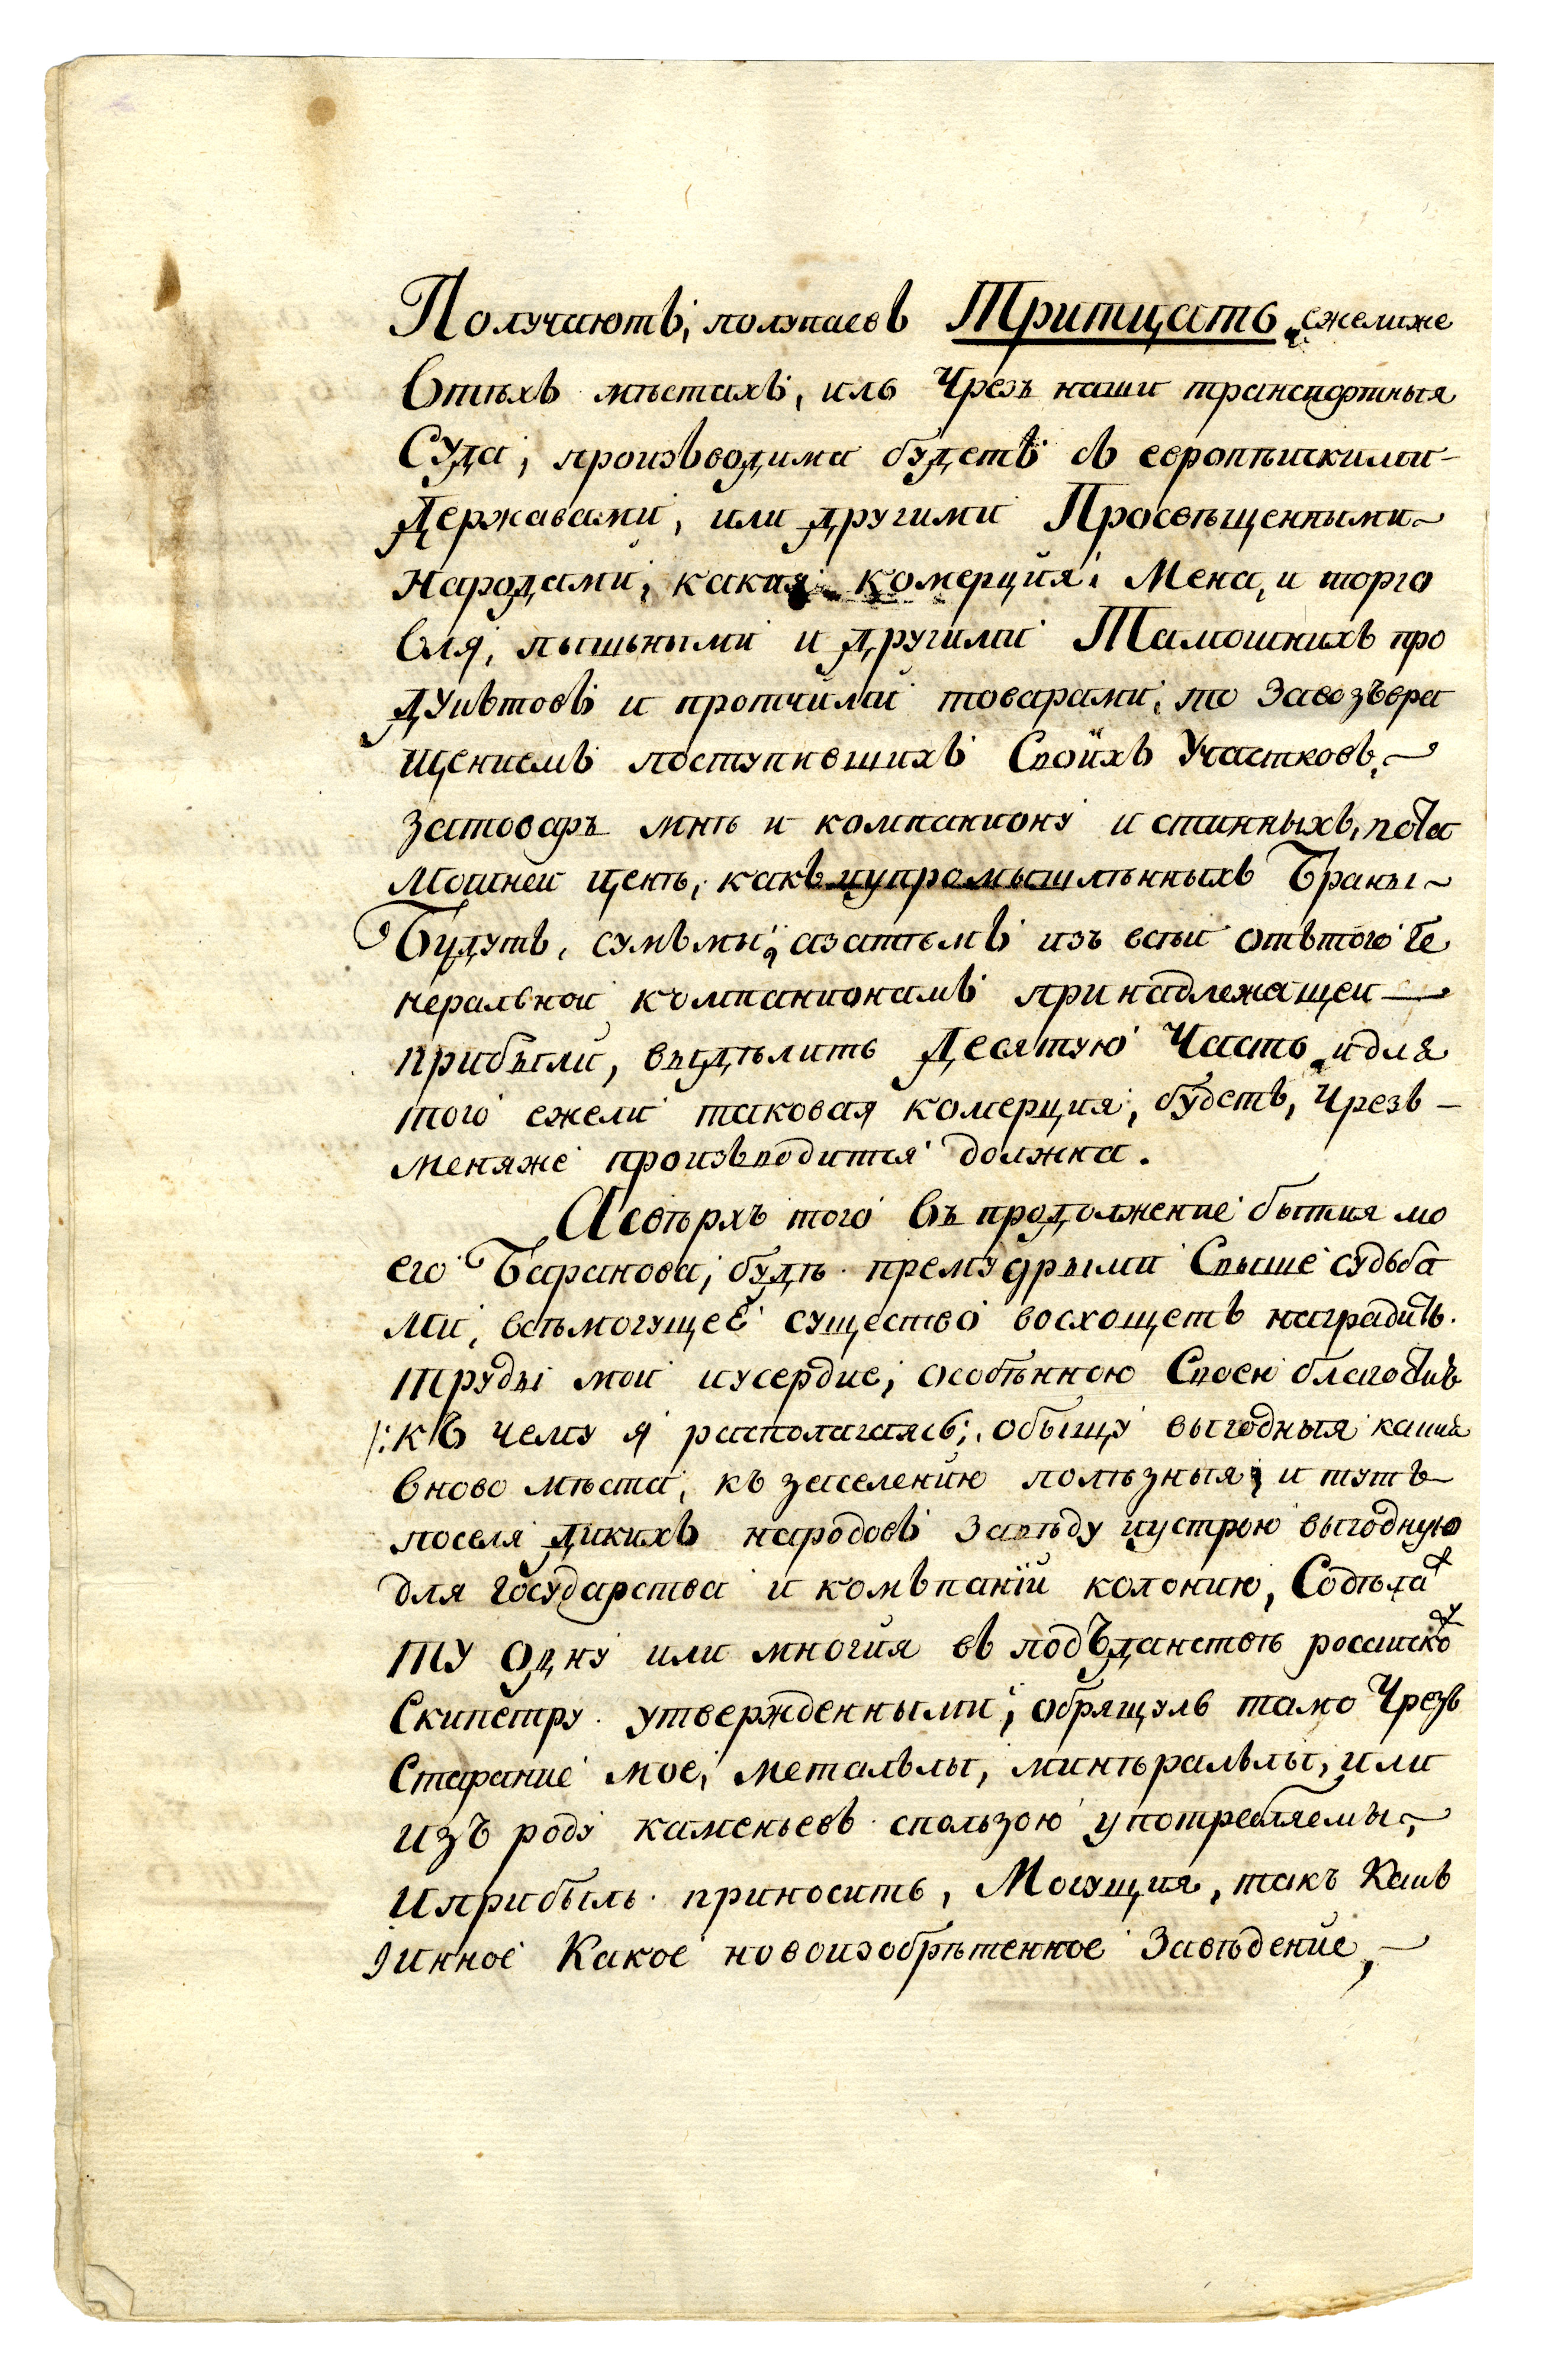 Получаютъ, полупаевъ Тритцать, ежелиже
Втѣхъ мѣстахъ, иль Чрезъ наши транспортныя
Суда, произъводима будетъ съ европѣискими
Державами, или другими Просвѣщенными
Народами, какая комерция, Мена, и торго
вля, пышьными и другими Тамошнихъ про
дуктовъ и протчими товарами, то Завозъвра
щениемъ поступившихъ Своихъ Участковъ,
Затоваръ мнѣ и компаниону истинныхъ, пота
мошнеи ценѣ, какъ иупромышлѣнныхъ Браны
Будутъ, сумъмы, азатѣмъ изъ всѣи отътого Ге
неральнои компанионамъ принадлежащеи
прибыли, выдѣлить Десятую Часть, идля
того ежели таковая комерция, будетъ, Чрезъ
меняже произъводится должна.
Асвѣрхъ того Въ продолжение бытия мо
его Баранова, будѣ премудрыми Свыше судьба
ми, всѣмогущеѣ существо восхощетъ наградить
труды мои иусердие, особѣнною Своею благодать
/: къ чему я располагаясь; обыщу выгодныя какия
вново мѣста, къ заселению полѣзныя, и тутъ
поселя дикихъ народовъ Завѣду иустрою выгодную
для государства и комъпании колонию, Содѣла
ту одну или многия въ подъданствѣ россииско
Скипетру утвержденными, обрящуль тамо Чрезъ
Старание мое, металълы, минѣралълы, или
изъ роду каменьевъ спользою употребляемы,
Иприбыль приносить, Могущия, такъ Какъ
иное Какое новоизобрѣтенное Завѣдение,